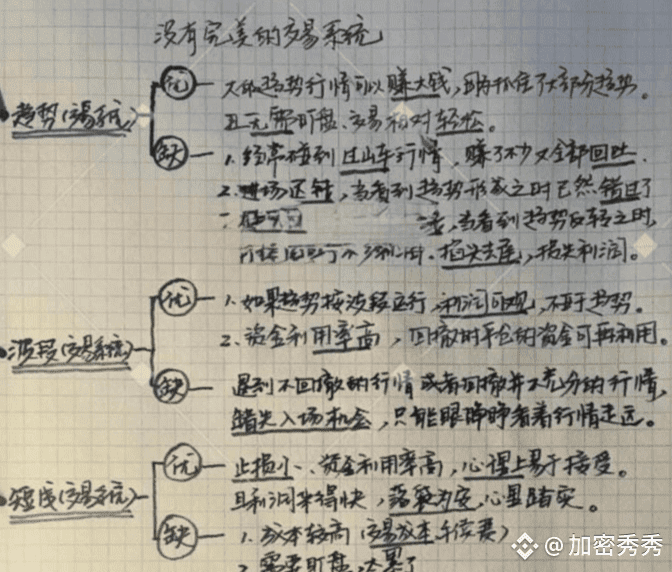 没有完美的交易系统
趋势(交易系统)
优 — 大级趋势行情可以赚大钱,因为抓住了大部分趋势。
且无需盯盘、交易相对轻松。
缺 — 1.经常碰到过山车行情,赚了不少又全部回吐.
2.进场迟钝,当看到趋势形成之时已然错过了
一 ,当看到趋势反转之时,
损失利润。
波段(交易系统)
优 — 1.如果趋势按波段运行,利润可观,不亚于趋势。
2.资金利用率高,回撤时平仓的资金可再利用。
缺 — 遇到不回撤的行情或者回撤并不充分的行情,
错失入场机会,只能眼睁睁看着行情走远。
短线(交易系统)
优 — 止损小、资金利用率高,心理上易于接受。
且利润来得快,落袋为安,心里踏实。
缺 — 1.成本较高(交易成本手续费)
2.需要盯盘,太累了
@加密秀秀